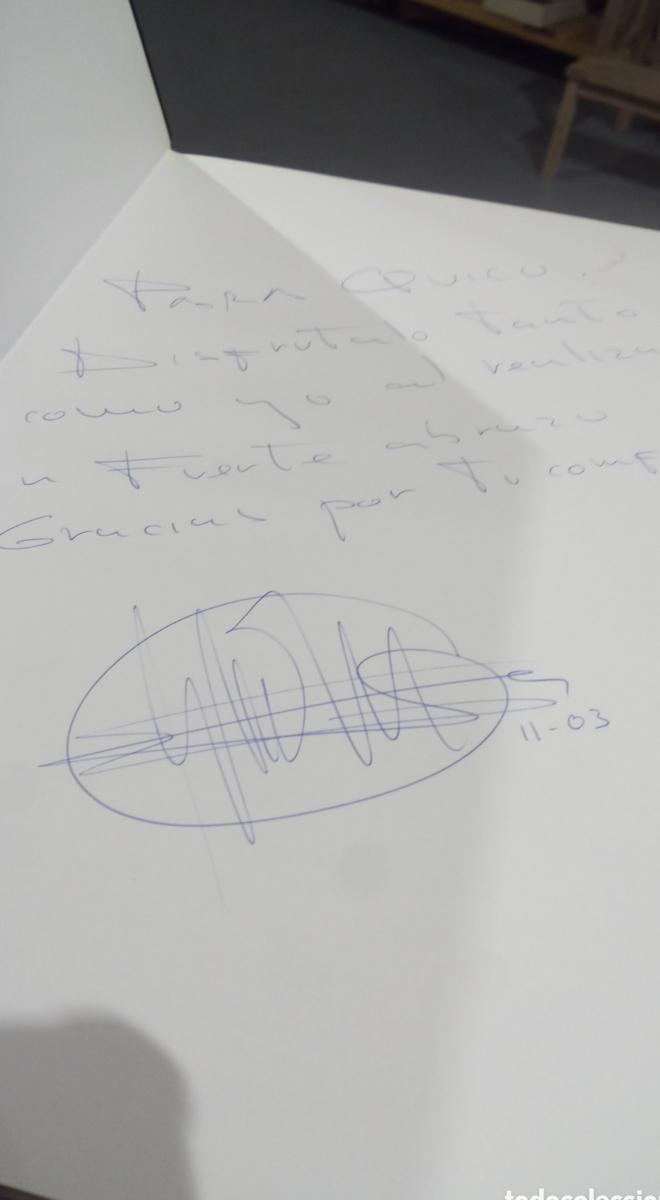 Para Quico.
Disfrutalo tanto
como yo al realiza
n fuerte abrazo
Gracias por tu comp
11-03
todocoleccio